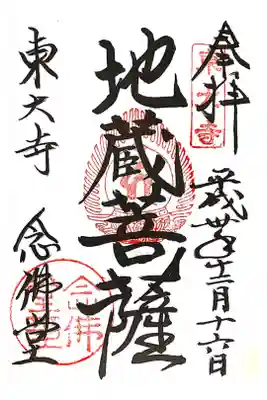 奉拝
平成 年十二月十六日
地蔵菩薩
東大寺 念佛堂
東大寺
念佛堂